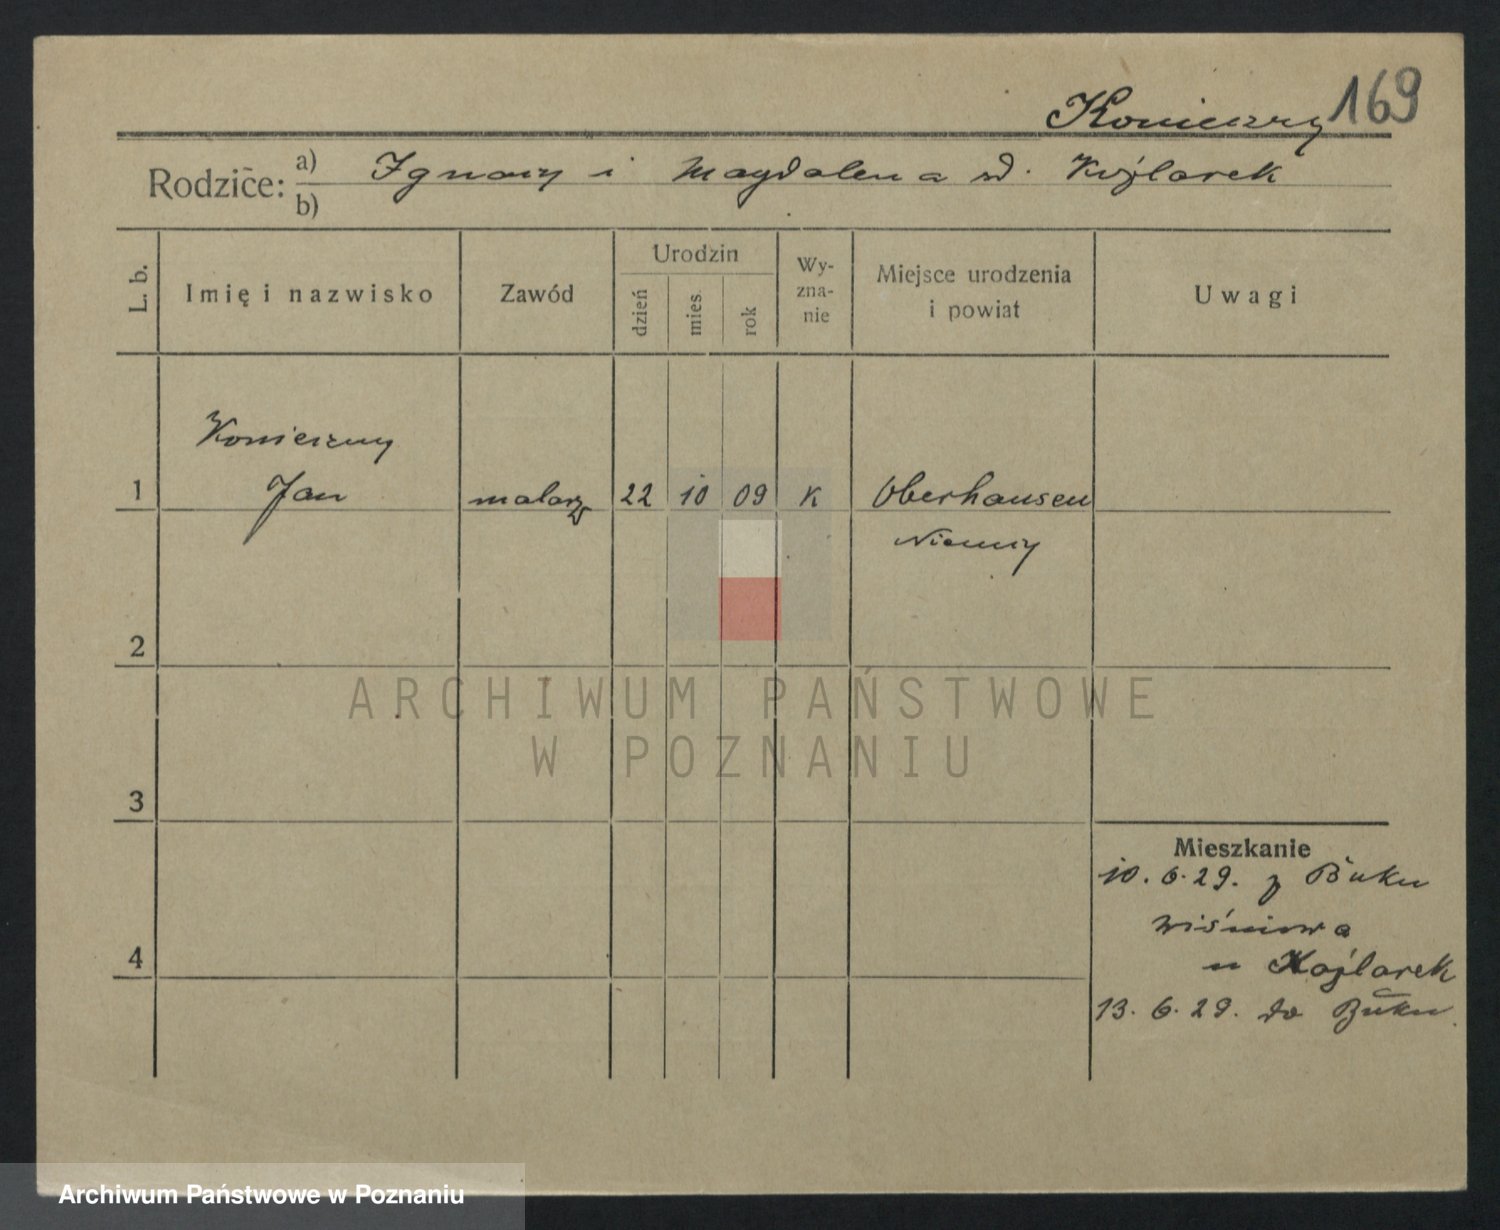 Konieczny 169
Rodzice: a) Ignacy i Magdalena
b)
L. b.
Imię i nazwisko
Zawód
Urodzin
dzień
mies.
rok
Wy-
zna-
nie
Miejsce urodzenia
i powiat
Uwagi
Konieczny
1 Jan malarz 22 10 09 K Oberhausen
Niemcy
2
ARCHIWUM PAŃSTWOWE
W POZNANIU
3
Mieszkanie
10. 6. 29. z Buku
Wiśniowa
4
13. 6. 29. do Buku.
Archiwum Państwowe w Poznaniu